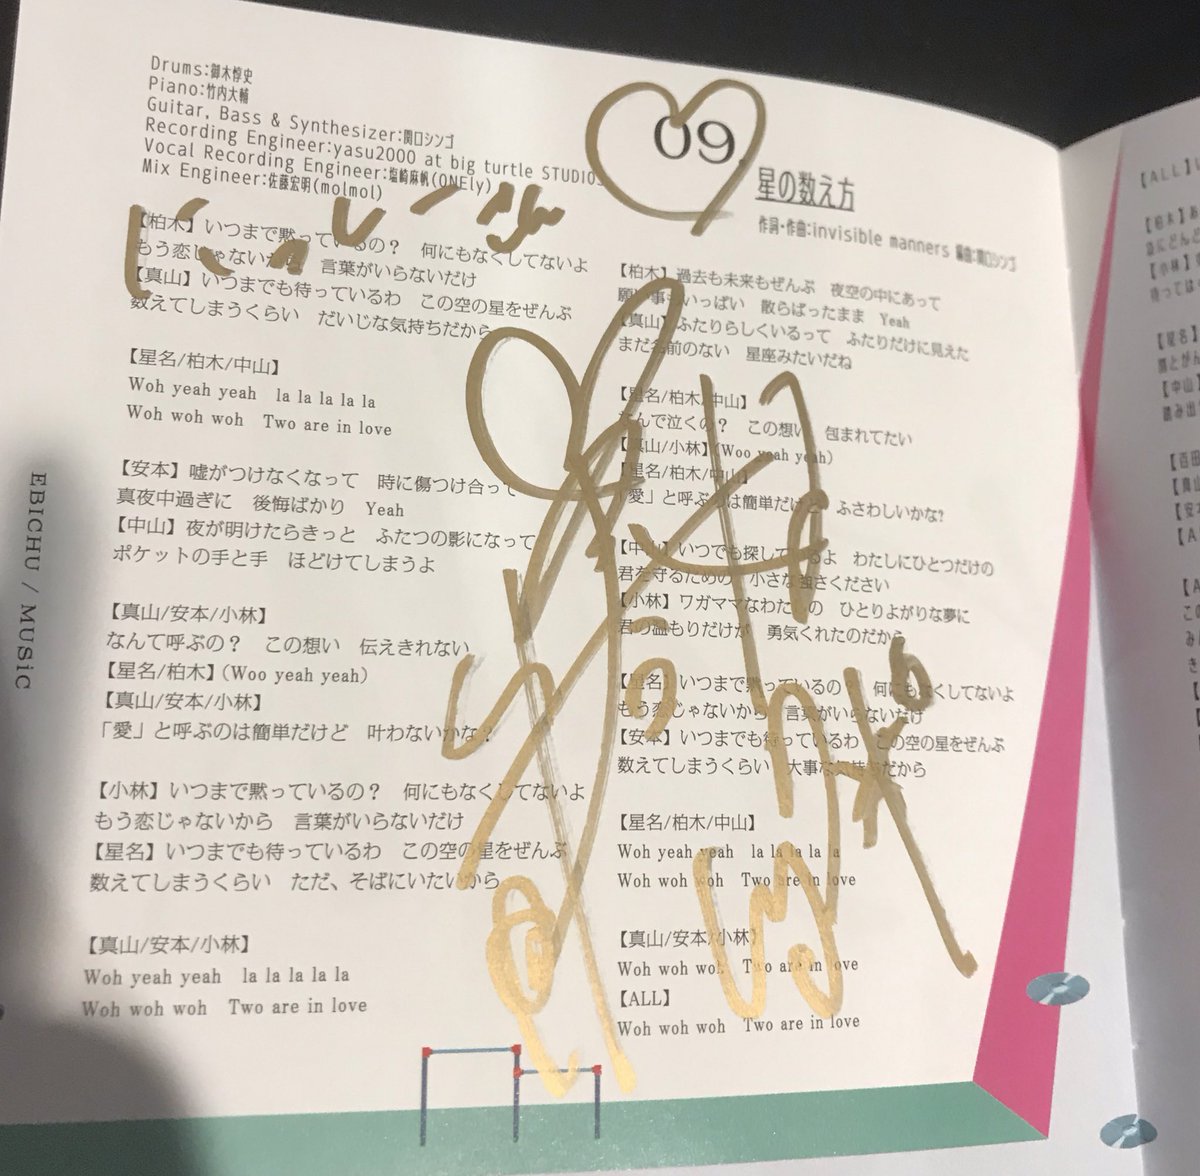 Drums:御木惇史
Piano:竹内大輔
Guitar, Bass & Synthesizer:関口シンゴ
Recording Engineer:yasu2000 at big turtle STUDIOS
Vocal Recording Engineer:塩崎麻帆(ONEly)
Mix Engineer:佐藤宏明(molmol)
【柏木】いつまで黙っているの？ 何にもなくしてないよ
もう恋じゃないから 言葉がいらないだけ
【真山】いつまでも待っているわ この空の星をぜんぶ
数えてしまうくらい だいじな気持ちだから
【星名/柏木/中山】
Woh yeah yeah la la la la la
Woh woh woh Two are in love
【安本】嘘がつけなくなって 時に傷つけ合って
真夜中過ぎに 後悔ばかり Yeah
【中山】夜が明けたらきっと ふたつの影になって
ポケットの手と手 ほどけてしまうよ
【真山/安本/小林】
なんて呼ぶの？ この想い 伝えきれない
【星名/柏木】（Woo yeah yeah）
【真山/安本/小林】
「愛」と呼ぶのは簡単だけど 叶わないかな？
【小林】いつまで黙っているの？ 何にもなくしてないよ
もう恋じゃないから 言葉がいらないだけ
【星名】いつまでも待っているわ この空の星をぜんぶ
数えてしまうくらい ただ、そばにいたいから
【真山/安本/小林】
Woh yeah yeah la la la la la
Woh woh woh Two are in love
EBICHU / MUSiC
09.
星の数え方
作詞・作曲:invisible manners 編曲:関口シンゴ
【柏木】過去も未来もぜんぶ 夜空の中にあって
願い事もいっぱい 散らばったまま Yeah
【真山】ふたりらしくいるって ふたりだけに見えた
まだ名前のない 星座みたいだね
【星名/柏木/中山】
なんで泣くの？ この想い 包まれてたい
【真山/小林】（Woo yeah yeah）
【星名/柏木/中山】
「愛」と呼ぶのは簡単だけど ふさわしいかな?
【中山】いつでも探してるよ わたしにひとつだけの
君を守るための 小さな強さください
【小林】ワガママなわたしの ひとりよがりな夢に
君の温もりだけが 勇気くれたのだから
【星名】いつまで黙っているの？ 何にもなくしてないよ
もう恋じゃないから 言葉がいらないだけ
【安本】いつまでも待っているわ この空の星をぜんぶ
数えてしまうくらい 大事な気持ちだから
【星名/柏木/中山】
Woh yeah yeah la la la la la
Woh woh woh Two are in love
【真山/安本/小林】
Woh woh woh Two are in love
【ALL】
Woh woh woh Two are in love
【ALL】